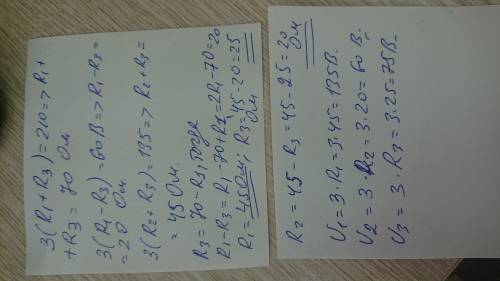 3(R1+R3)=210=>R1+
+R3=70 Ом
3(R1-R3)=60В=>R1-R3=
=20 Ом.
3(R2+R3)=135=>R2+R3=
=45 Ом.
R3=70-R1, тогда
R1-R3=R1-70+R1=2R1-70=20
R1=45 Ом; R3=45-20=25 Ом
R2=45-R3=45-25=20 Ом
U1=3·R1=3·45=135В.
U2=3·R2=3·20=60В.
U3=3·R3=3·25=75В.